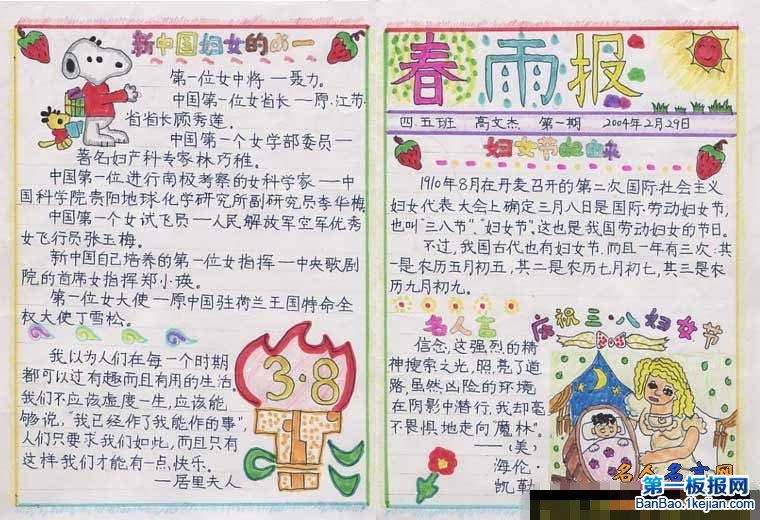 新中国妇女的第一
第一位女中将—聂力。
中国第一位女省长—原·江苏
省省长顾秀莲。
中国第一个女学部委员—
著名妇产科专家林巧稚。
中国第一位进行南极考察的女科学家—中
国科学院贵阳地球化学研究所副研究员李华梅
中国第一个女试飞员—人民解放军空军优秀
女飞行员张玉梅。
新中国自己培养的第一位女指挥—中央歌剧
院的首席女指挥郑小瑛。
第一位女大使—原中国驻荷兰王国特命全
权大使丁雪松。
我以为人们在每一个时期
都可以过有趣而且有用的生活。
我们不应该虚度一生,应该能
够说,"我已经作了我能作的事",
人们只要求我们如此,而且只有
这样我们才能有一点快乐。
—居里夫人
3·8
春雨报
四.五班 高文杰 第一期 2004年2月29日
妇女节的由来
1910年8月在丹麦召开的第二次国际社会主义
妇女代表大会上确定三月八日是国际劳动妇女节,
也叫"三八节"、"妇女节",这也是我国劳动妇女的节日。
不过,我国古代也有妇女节,而且一年有三次:其
一是农历五月初五,其二是农历七月初七,其三是农
历九月初九。
名人言
信念,这强烈的精
神搜索之光,照亮了道
路,虽然凶险的环境
在阴影中潜行,我却毫
不畏惧地走向"魔林"。
—(美)
海伦·
凯勒
庆祝三·八妇女节
名人名言网
第一板报网
BanBao.1kejian.com